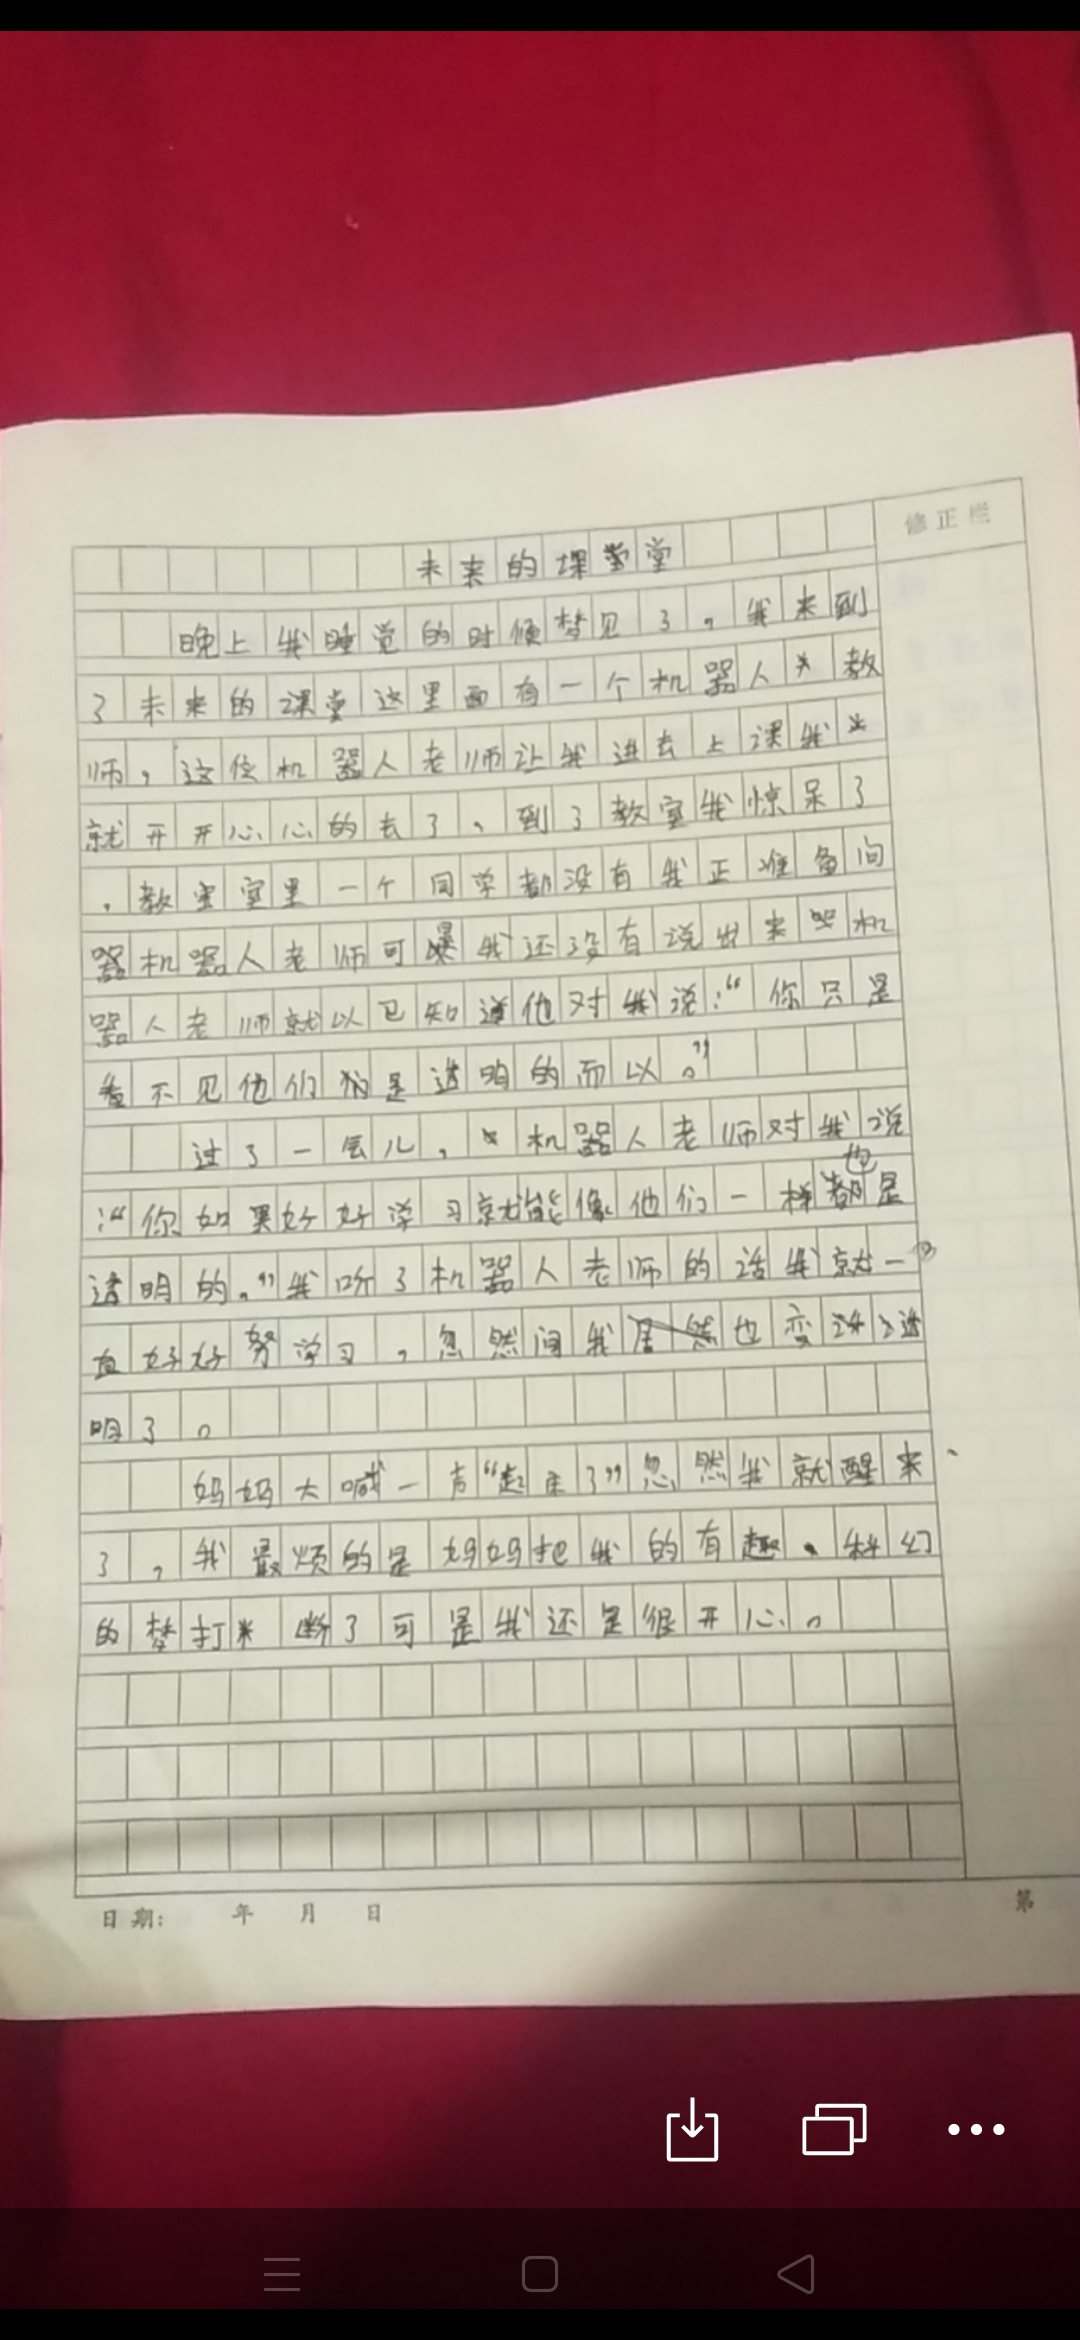 未来的课堂
晚上我睡觉的时候梦见了，我来到
了未来的课堂这里面有一个机器人教
师，这位机器人老师让我进去上课我
就开开心心的去了。到了教室我惊呆了
，教室里一个同学都没有我正准备问
机器人老师可是我还没有说出来机
器人老师就以已知道他对我说：“你只是
看不见他们是透明的而以。”
过了一会儿，机器人老师对我说
：“你如果好好学习就能像他们一样也是
透明的。”我听了机器人老师的话我就一
直好好努学习，忽然间我也变透
明了。
妈妈大喊一声“起来了”忽然我就醒来
了，我最烦的是妈妈把我的有趣、科幻
的梦打断了可是我还是很开心。
修正栏
日期： 年 月 日
第